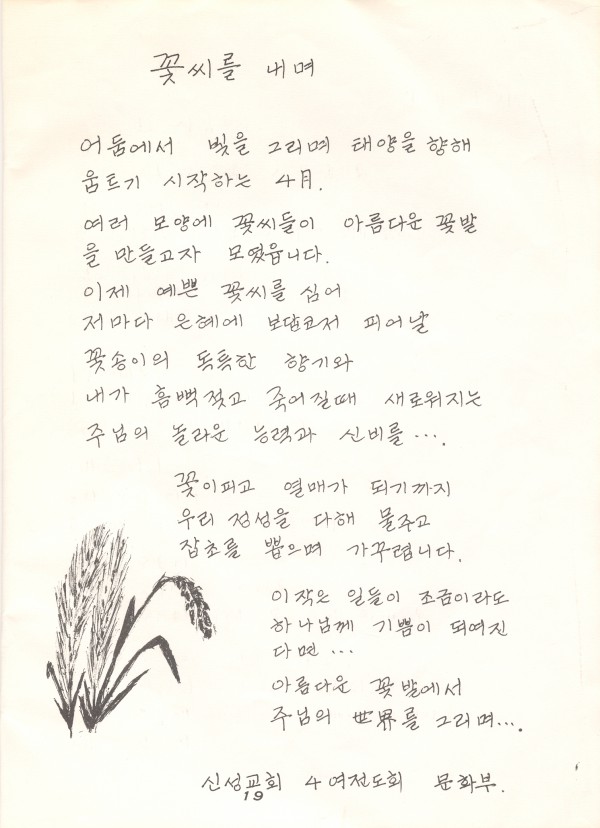 꽃씨를 내며
어둠에서 빛을 그리며 태양을 향해
움트기 시작하는 4月.
여러 모양에 꽃씨들이 아름다운 꽃밭
을 만들고자 모였읍니다.
이제 예쁜 꽃씨를 심어
저마다 은혜에 보답코저 피어날
꽃송이의 독특한 향기와
내가 흠뻑젖고 죽어질때 새로워지는
주님의 놀라운 능력과 신비를….
꽃이피고 열매가 되기까지
우리 정성을 다해 물주고
잡초를 뽑으며 가꾸렵니다.
이작은 일들이 조금이라도
하나님께 기쁨이 되여진
다면…
아름다운 꽃밭에서
주님의 世界를 그리며….
신성교회 4여전도회 문화부.
19